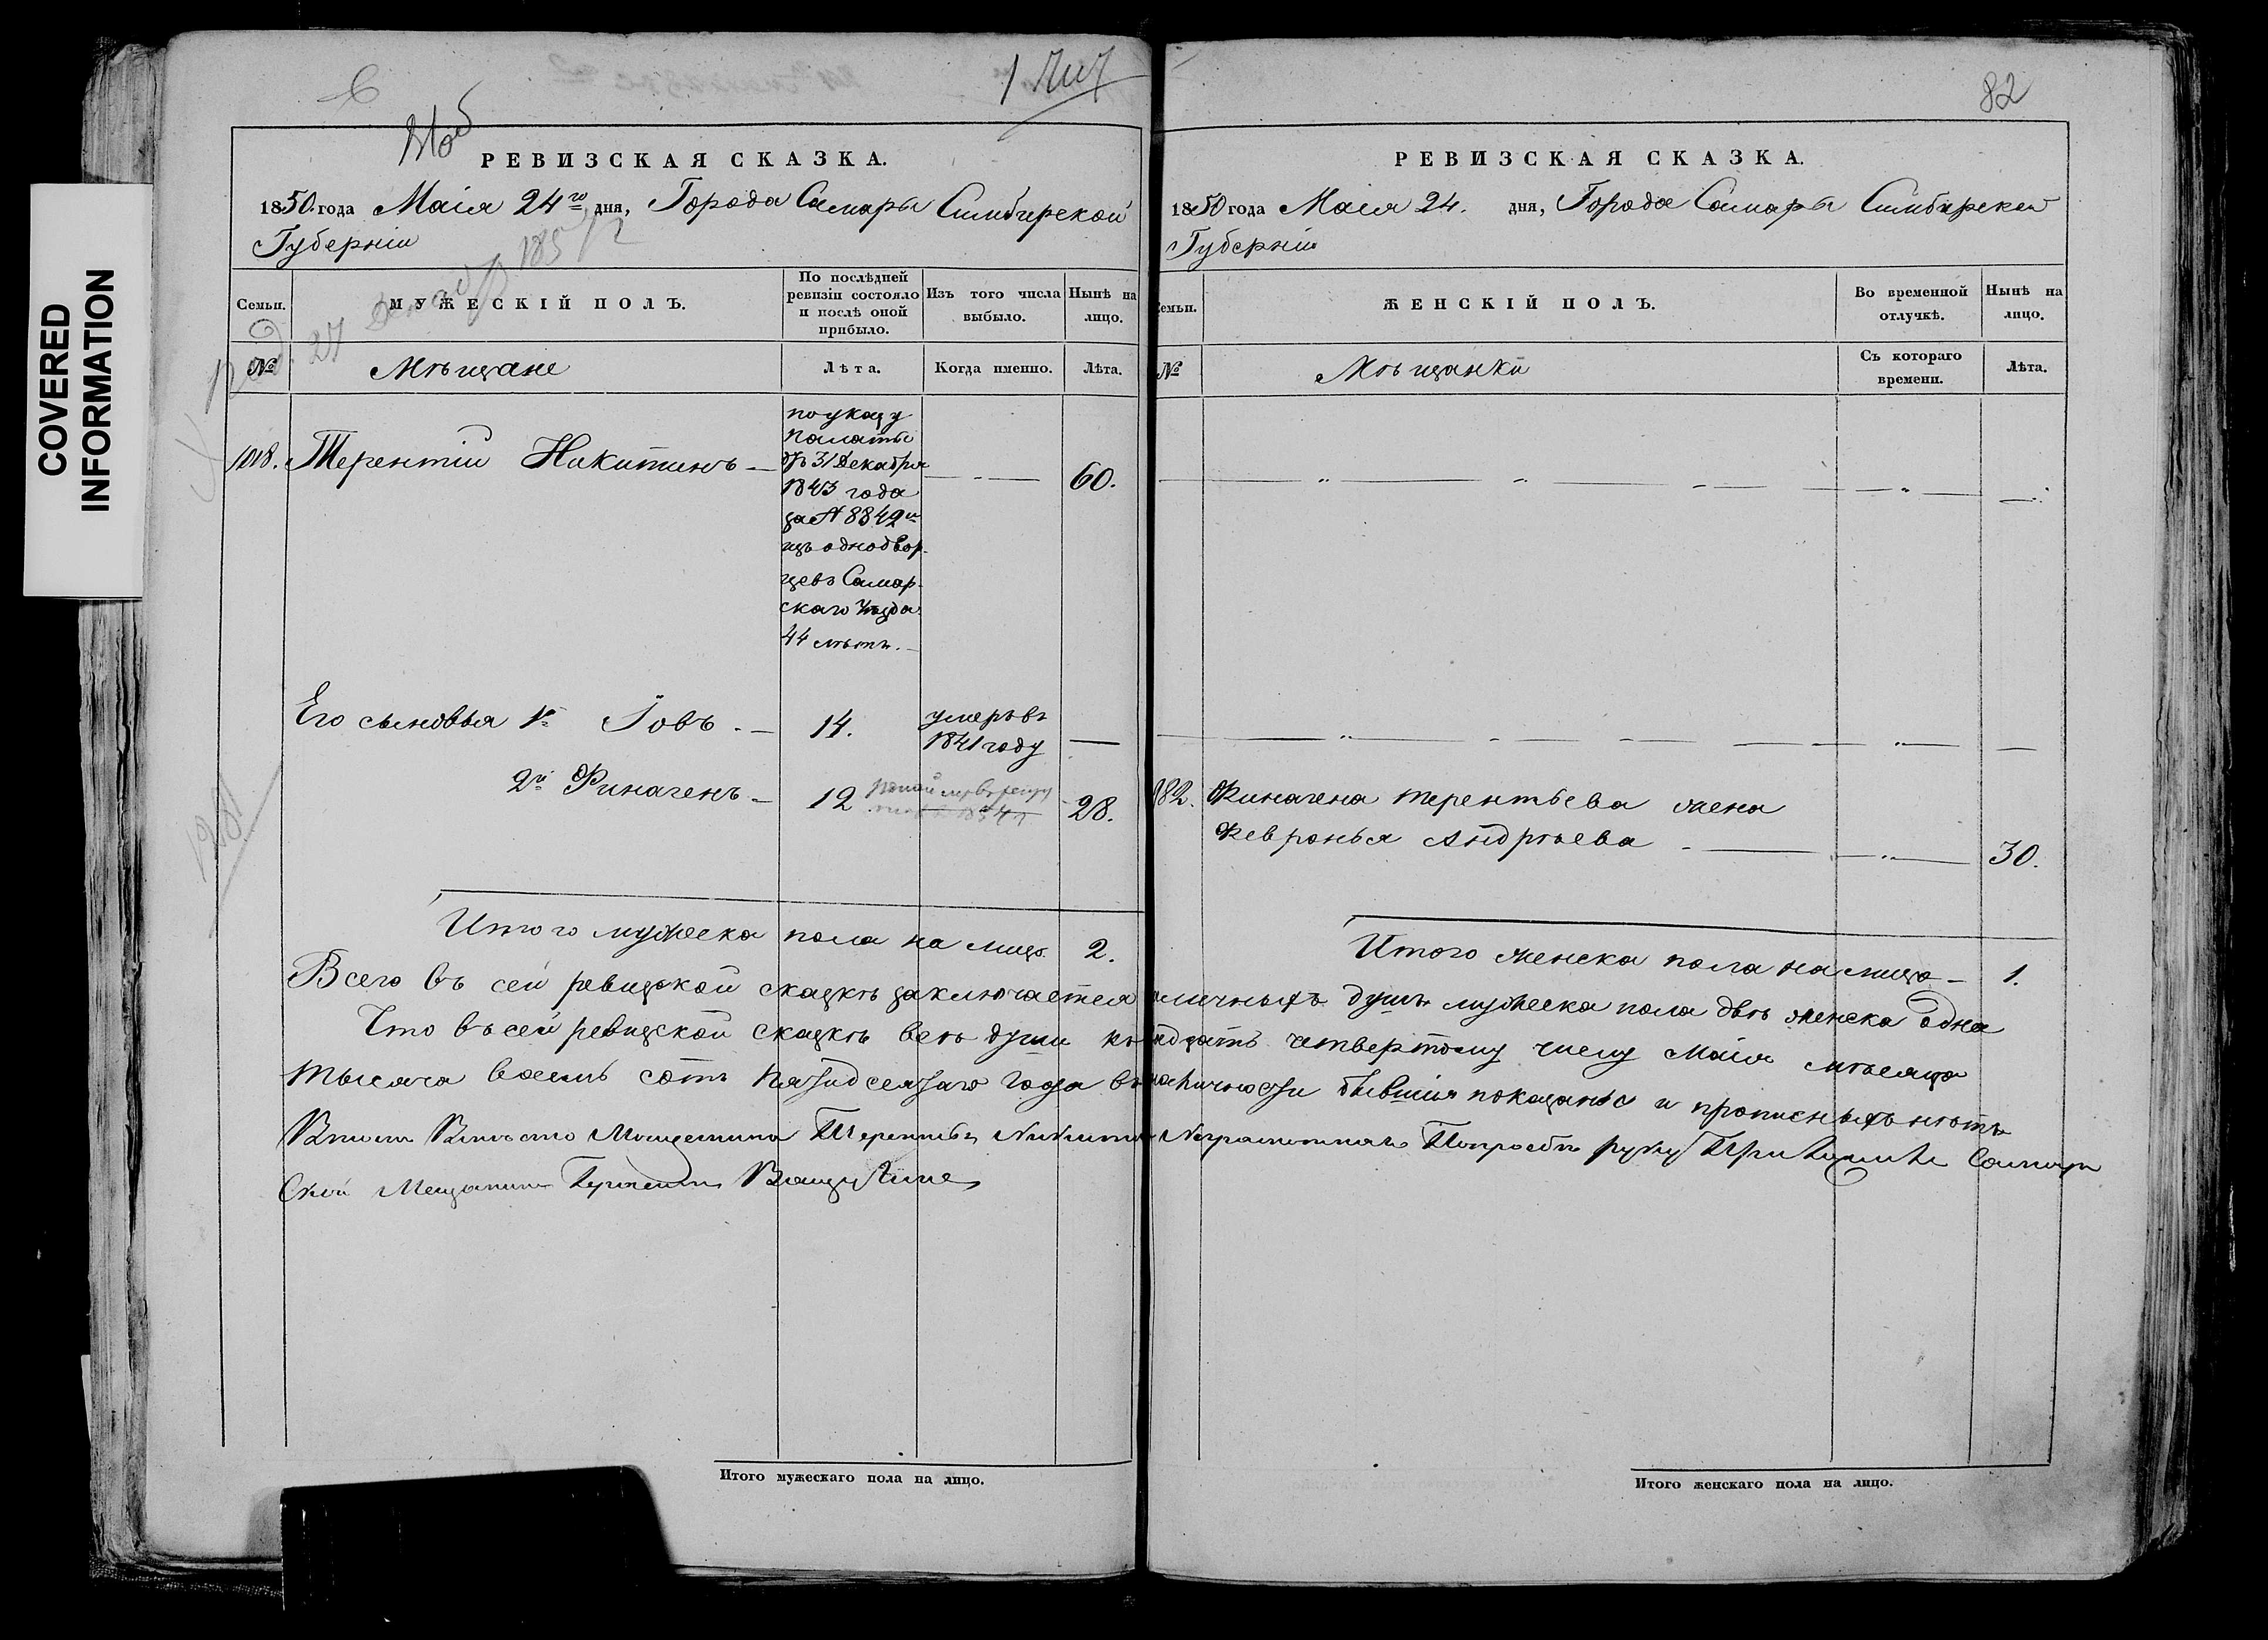 COVERED
INFORMATION
82
РЕВИЗСКАЯ СКАЗКА.
1850. года Маія 24го дня, Города Самары Симбирской
Губерніи
Семьи.
МУЖЕСКІЙ ПОЛЪ.
По послѣдней
ревизіи состояло
и послѣ оной
прибыло.
Изъ того числа
выбыло.
Нынѣ на
лицо.
№
Мѣщане
Лѣта.
Когда именно.
Лѣта.
1018. Терентій Никитинъ
по указу
палаты
отъ 31 декабря
1843 года
за № 8842м
изъ однодвор-
цевъ Самар-
скаго Уѣзда
44 лѣтъ.
60.
Его сыновья 1й Іовъ
14.
умеръ въ
1841 году
2й Финагенъ
12
28.
Итого мужеска пола на лицо 2.
РЕВИЗСКАЯ СКАЗКА.
1850 года Маія 24. дня, Города Самары Симбирской
Губерніи
семьи.
ЖЕНСКІЙ ПОЛЪ.
Во временной
отлучкѣ.
Нынѣ на
лицо.
№
Мѣщанки
Съ котораго
времени.
Лѣта.
Финагена терентьева жена
Февронья Андрѣева
30.
Итого женска пола на лицо 1.
Всего въ сей ревизской сказкѣ заключается наличныхъ душъ мужеска пола двѣ женска одна
Что въ сей ревизской сказкѣ всѣ души къ двадцать четвертому числу Маія мѣсяца
тысяча восемь сотъ пятидесятаго года въ наличности бывшія показаны и прописныхъ нѣтъ
Вместо Мещанина Терентья Никитина Неграмотнаго По прозбѣ руку Приложилъ Самар
Ской Мещанинъ
Итого мужескаго пола на лицо.
Итого женскаго пола на лицо.